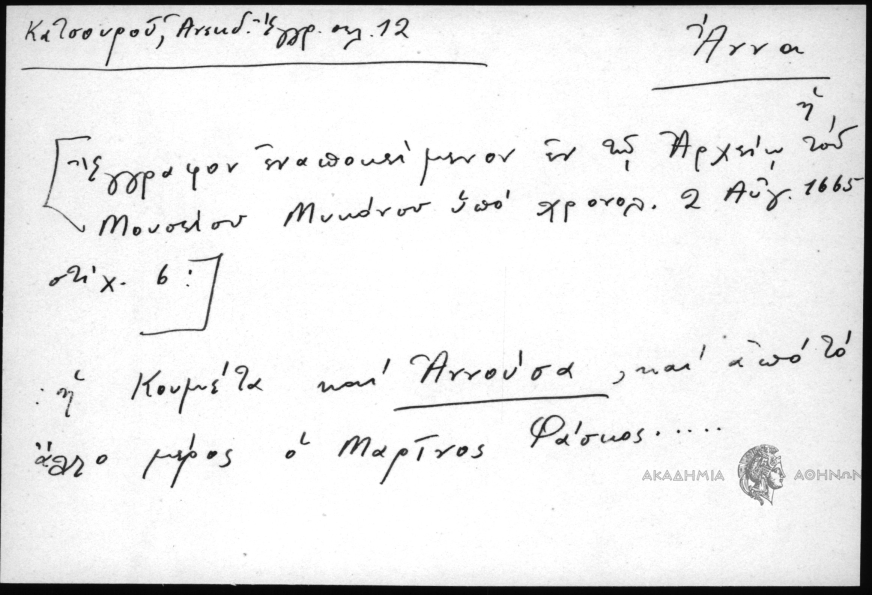 Κατσουροῦ, Ἀνεκδ. Ἔγγρ. σελ. 12
Ἄννα
ἡ
[Ἔγγραφον ἐναποκείμενον ἐν τῷ Ἀρχείῳ τοῦ
Μουσείου Μυκόνου ὑπό χρονολ. 2 Αὐγ. 1665
στίχ. 6:]
: ἡ Κουμέτα καί Ἀννούσα, καί ἀπό τό
ἄλλο μέρος ὁ Μαρῖνος Φάσκος.....
ΑΚΑΔΗΜΙΑ ΑΘΗΝΩΝ